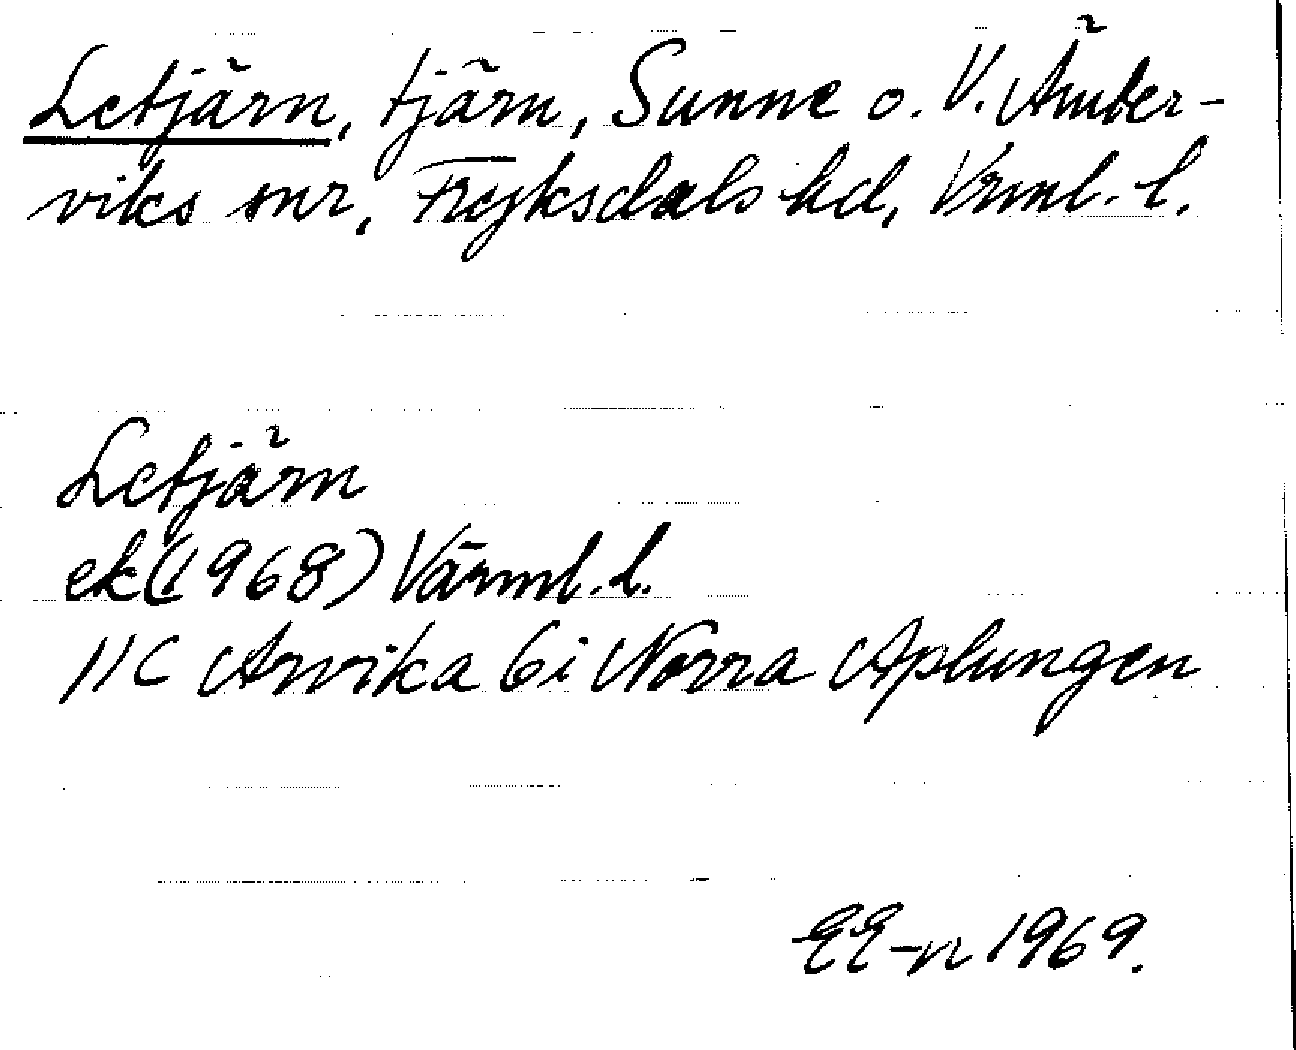 Letjärn, tjärn, Sunne o. V. Ämter-
viks snr, Fryksdals hd, Vrml. l.
Letjärn
ek (1968) Värml. l.
11C Arvika 6i Norra Aplungen
EE-n 1969.